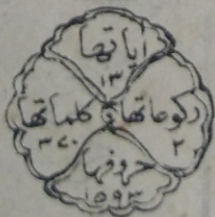 اياتها
١٣
ركوعاتها
٢
كلماتها
٣٧٠
حروفها
١٥٩٣